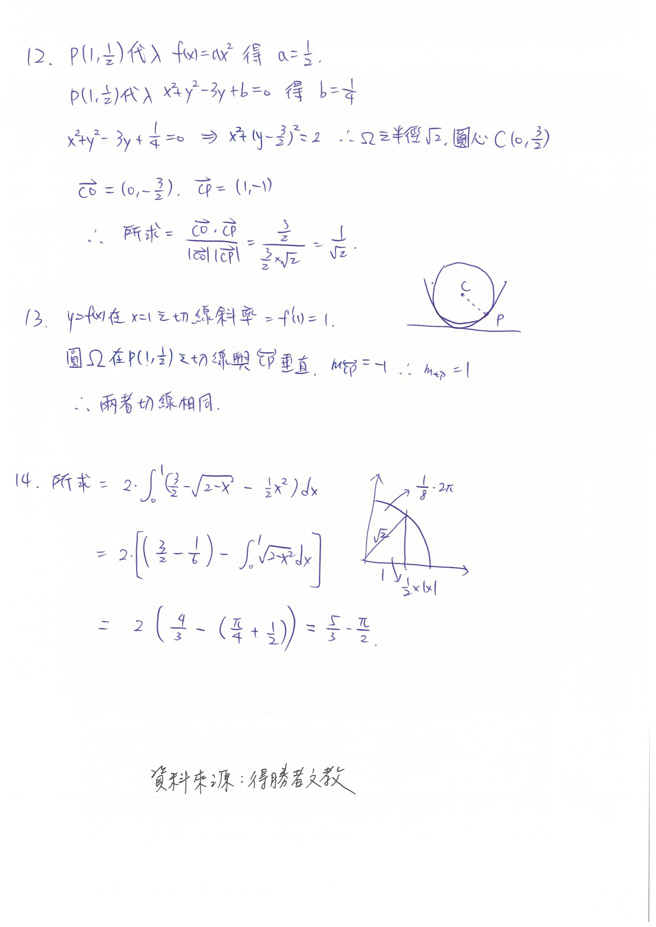 12. P(1,1/2)代入 f(x)=ax² 得 a=1/2.
P(1,1/2)代入 x²+y²-3y+b=0 得 b=1/4
x²+y²-3y+1/4=0 ⇒ x²+(y-3/2)²=2 ∴Ω之半徑√2, 圓心 C(0,3/2)
→CO=(0,-3/2). →CP=(1,-1)
∴ 所求= (→CO·→CP)/(|→CO||→CP|) = (3/2)/(3/2×√2) = 1/√2.
C
P
13. y=f(x)在 x=1之切線斜率=f'(1)=1.
圓Ω在P(1,1/2)之切線與→CP垂直. m→CP=-1 ∴ m切=1
∴兩者切線相同.
14. 所求= 2·∫₀¹(3/2-√(2-x²)-1/2x²)dx
= 2·[(3/2-1/6)-∫₀¹√(2-x²)dx]
= 2(4/3-(π/4+1/2)) = 5/3-π/2.
1/8·2π
√2
1
1/2×1×1
資料來源:得勝者文教